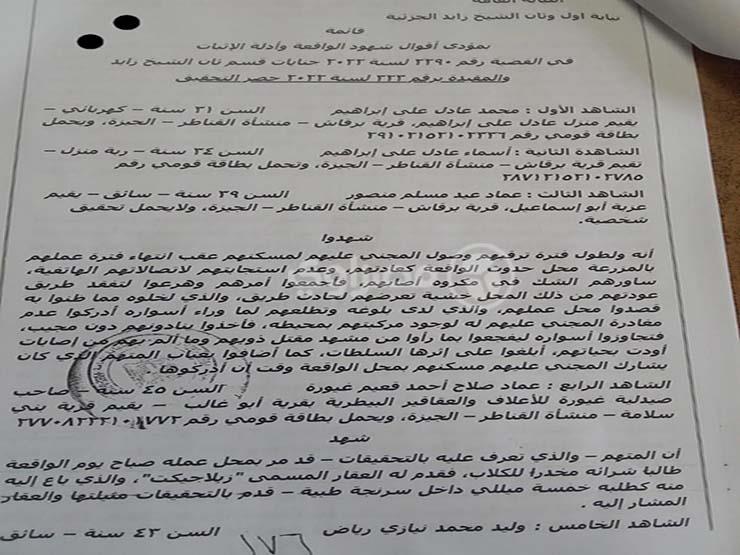 النيابة العامة
نيابة أول وثان الشيخ زايد الجزئية
قائمة
بمؤدى أقوال شهود الواقعة وأدلة الإثبات
في القضية رقم ٢٢٩٠ لسنة ٢٠٢٢ جنايات قسم ثان الشيخ زايد
والمقيدة برقم ٢٢٢ لسنة ٢٠٢٢ حصر التحقيق
الشاهد الأول : محمد عادل على إبراهيم السن ٣١ سنة – كهربائي –
يقيم منزل عادل على إبراهيم، قرية برقاش – منشأة القناطر – الجيزة، ويحمل
بطاقة قومي رقم
الشاهدة الثانية : أسماء عادل على إبراهيم السن ٣٤ سنة – ربة منزل –
تقيم قرية برقاش – منشأة القناطر – الجيزة، وتحمل بطاقة قومي رقم
الشاهد الثالث : عماد عيد مسلم منصور السن ٣٩ سنة – سائق – يقيم
عزبة أبو إسماعيل، قرية برقاش – منشأة القناطر – الجيزة، ولايحمل تحقيق
شخصية.
شهدوا
أنه ولطول فترة ترقبهم وصول المجني عليهم لمسكنهم عقب انتهاء فترة عملهم
بالمزرعة محل حدوث الواقعة كعادتهم، وعدم استجابتهم لاتصالاتهم الهاتفية،
ساورهم الشك مكروه أصابهم، فأجمعوا أمرهم وهرعوا لتفقد طريق
عودتهم من ذلك المحل خشية تعرضهم لحادث طريق، والذي لخلوه مما ظنوا به
قصدوا محل عملهم، والذي لدى بلوغه وتطلعهم لما وراء أسواره أدركوا عدم
مغادرة المجني عليهم له لوجود مركبتهم بمحيطه، فأخذوا ينادونهم دون مجيب،
فتجاوزوا أسواره ليفجعوا بما رأوا من مشهد مقتل ذويهم وما ألم بهم من إصابات
أودت بحياتهم، أبلغوا على إثرها السلطات، كما أضافوا بغياب المتهم الذي كان
يشارك المجني عليهم مسكنهم بمحل الواقعة وقت أن أدركوها
الشاهد الرابع : عماد صلاح أحمد قعيم غبورة السن ٤٥ سنة – صاحب
صيدلية غبورة للأعلاف والعقاقير البيطرية بقرية أبو غالب – يقيم قرية بني
سلامة – منشأة القناطر – الجيزة، ويحمل بطاقة قومي رقم
شهد
أن المتهم – والذي تعرف عليه بالتحقيقات – قد مر بمحل عمله صباح يوم الواقعة
طالبا شرائه مخدرا للكلاب، فقدم له العقار المسمى "زيلاجيكت"، والذي باع إليه
منه كطلبه خمسة ميللي داخل سرنجة طبية – قدم بالتحقيقات مثيلتها والعقار
المشار إليه .
الشاهد الخامس : وليد محمد نيازي رياض السن ٤٣ سنة – سائق –
١٧٦